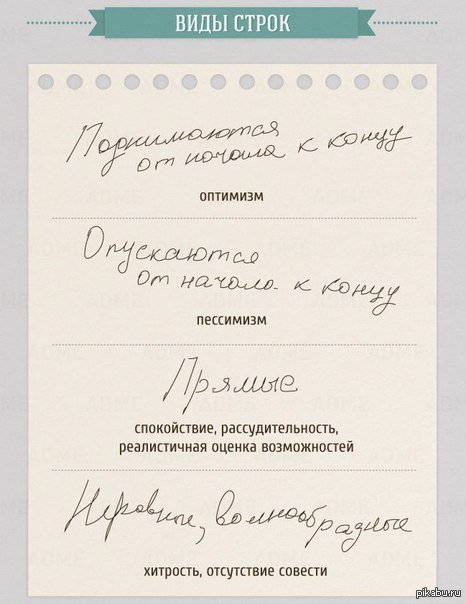 ВИДЫ СТРОК
Поднимаются
от начала к концу
оптимизм
Опускаются
от начала к концу
пессимизм
Прямые
спокойствие, рассудительность,
реалистичная оценка возможностей
Неровные, волнообразные
хитрость, отсутствие совести
pikabu.ru